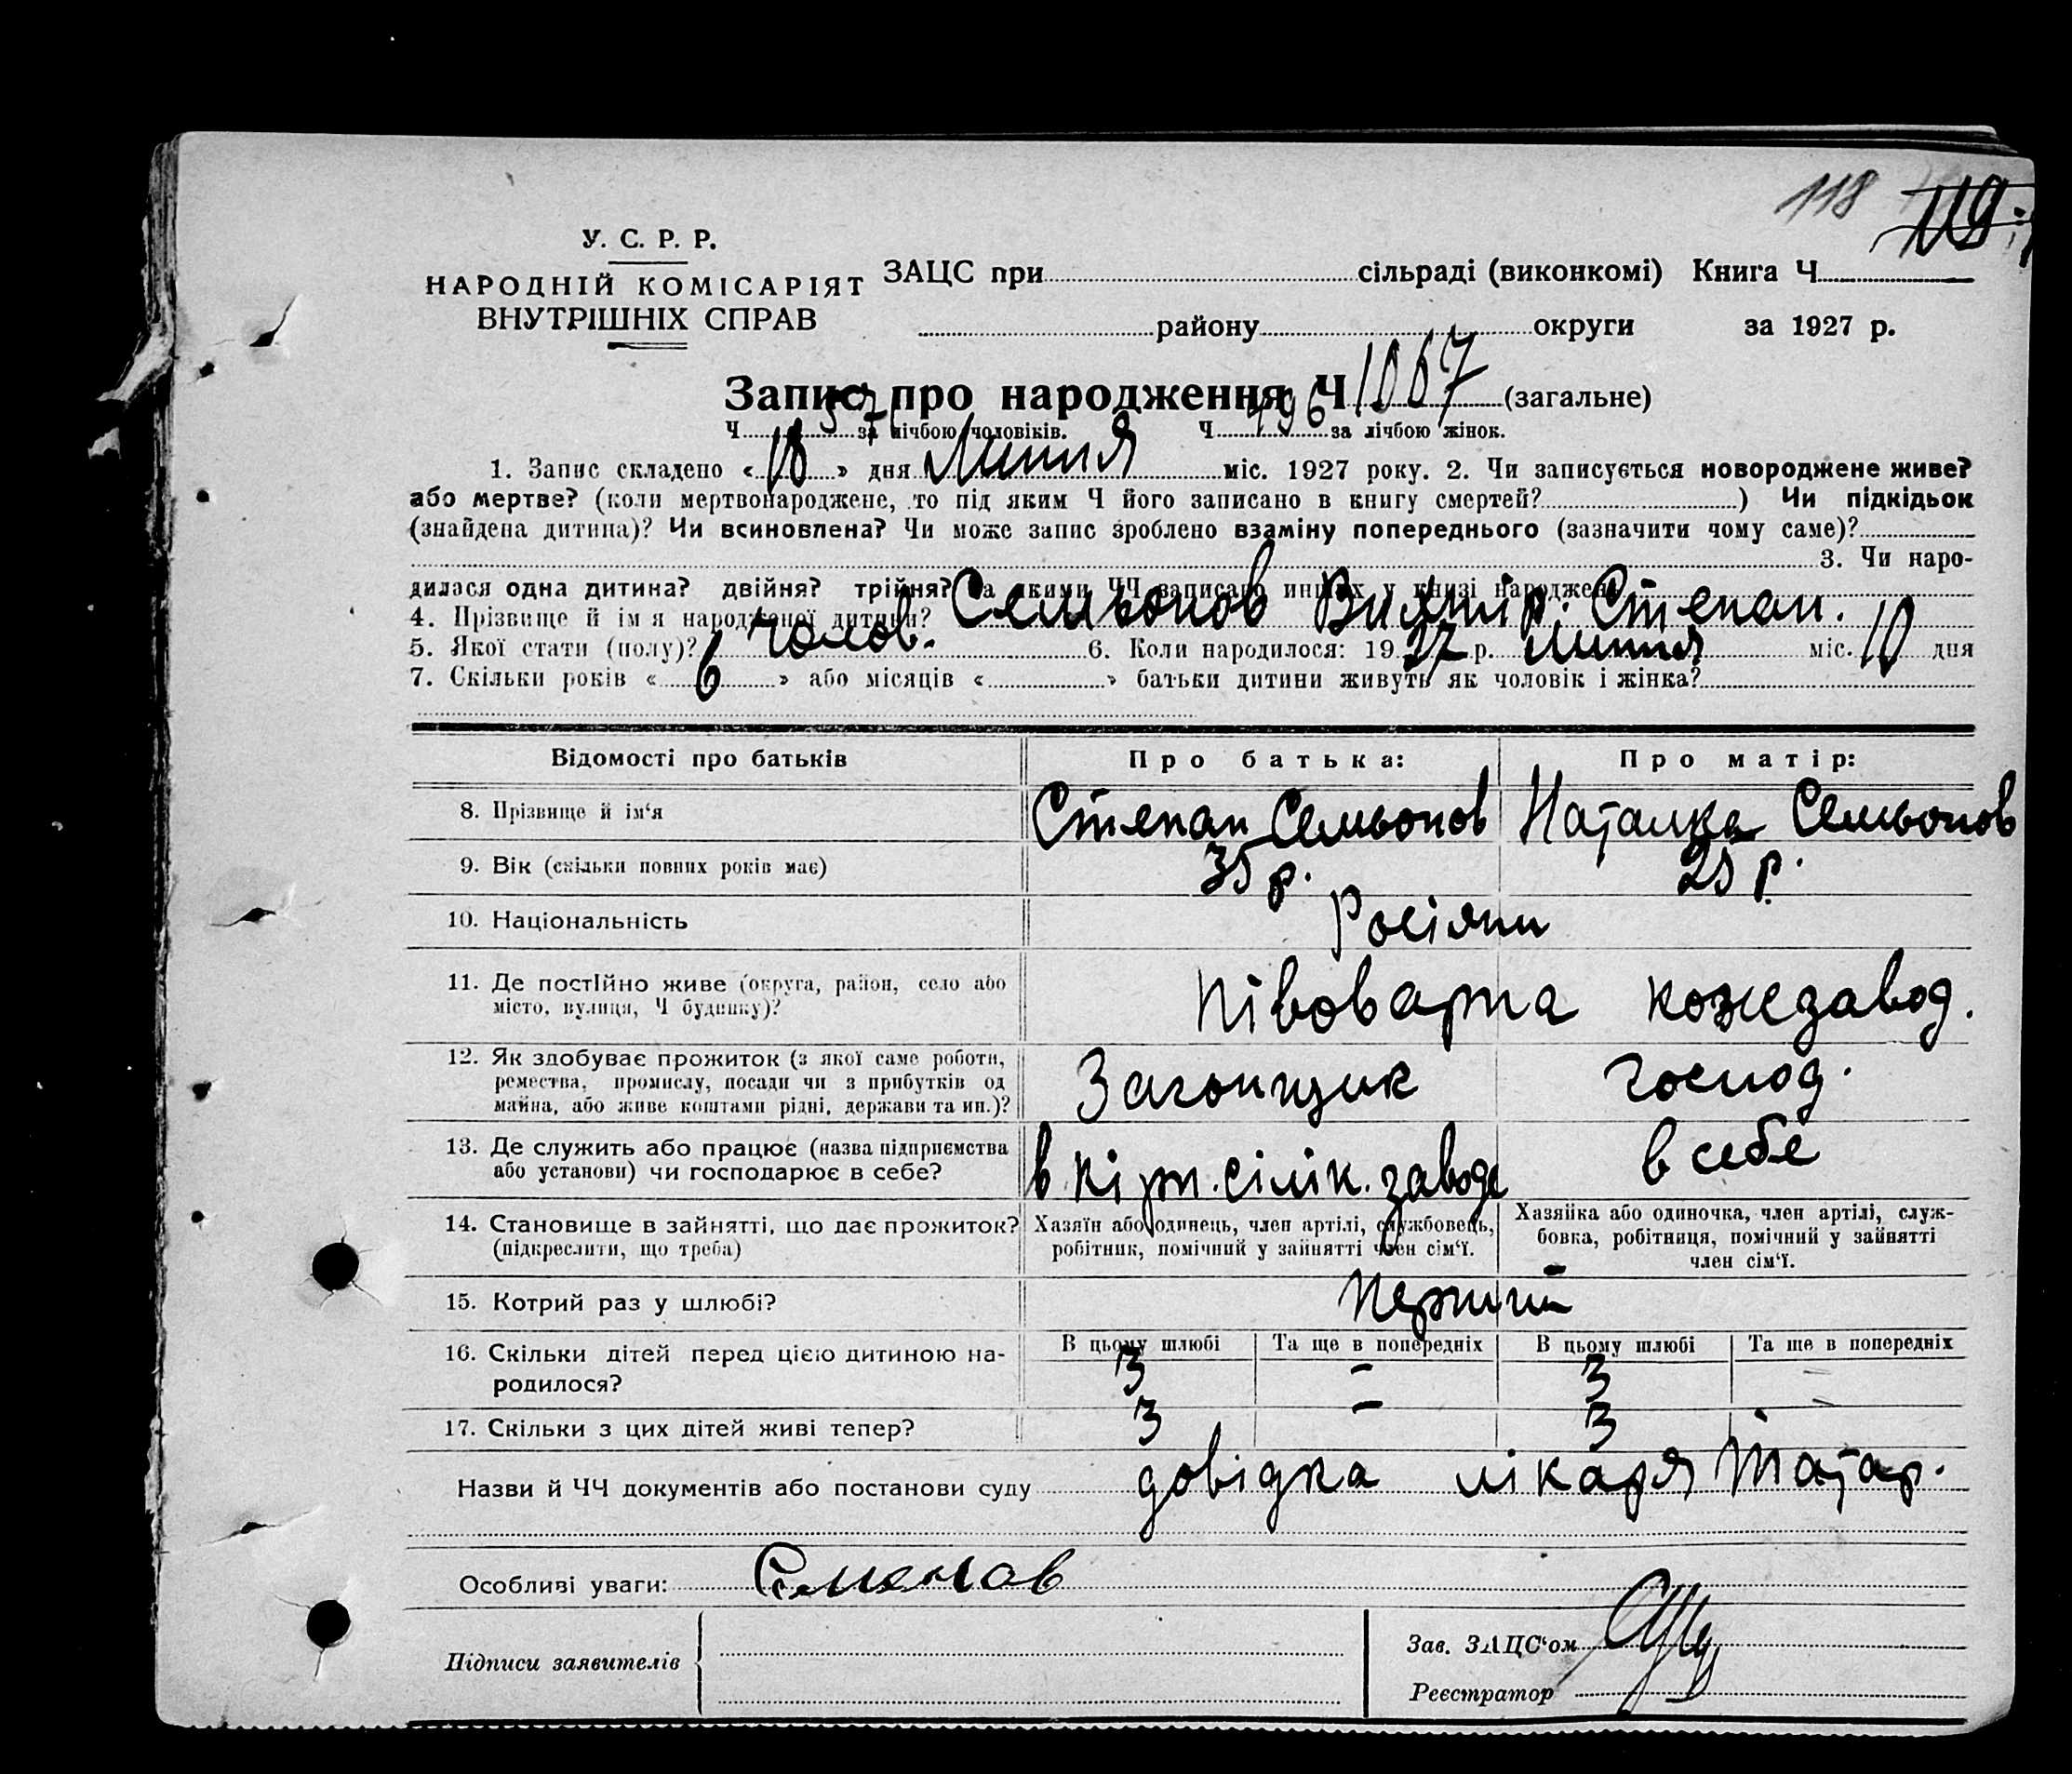 118 119
У. С. Р. Р.
НАРОДНІЙ КОМІСАРІЯТ
ВНУТРІШНІХ СПРАВ
ЗАЦС при сільраді (виконкомі) Книга Ч
району округи за 1927 р.
Запис про народження Ч 1067 (загальне)
Ч за лічбою чоловіків. Ч 496 за лічбою жінок.
1. Запис складено « 18 » дня Липня міс. 1927 року. 2. Чи записується новороджене живе?
або мертве? (коли мертвонароджене, то під яким Ч його записано в книгу смертей? ) Чи підкідьок
(знайдена дитина)? Чи всиновлена? Чи може запис зроблено взаміну попереднього (зазначити чому саме)?
3. Чи наро-
дилася одна дитина? двійня? трійня? За якими ЧЧ записано инших у книзі народжень
4. Прізвище й ім я народженої дитини? Семьонов Степан.
5. Якої стати (полу)? чолов. 6. Коли народилося: 19 27 р. липня міс. 10 дня
7. Скільки років « 6 » або місяців « » батьки дитини живуть як чоловік і жінка?
Відомості про батьків Про батька: Про матір:
8. Прізвище й ім‘я Степан Семьонов Наталка Семьонов
9. Вік (скільки повних років має) 35 р. 25 р.
10. Національність Росіяни
11. Де постійно живе (округа, район, село або
місто, вулиця, Ч будинку)? Півоварна кожзавод.
12. Як здобуває прожиток (з якої саме роботи,
ремества, промислу, посади чи з прибутків од
майна, або живе коштами рідні, держави та ин.)? Загонщик господ.
13. Де служить або працює (назва підприємства
або установи) чи господарює в себе? в кірп. сілік. заводе в себе
14. Становище в зайнятті, що дає прожиток?
(підкреслити, що треба)
Хазяїн або одинець, член артілі, службовець,
робітник, помічний у зайнятті член сім‘ї.
Хазяйка або одиночка, член артілі, служ-
бовка, робітниця, помічний у зайнятті
член сім‘ї.
15. Котрий раз у шлюбі? Перший
16. Скільки дітей перед цією дитиною на-
родилося?
В цьому шлюбі Та ще в попередніх В цьому шлюбі Та ще в попередніх
3 – 3 –
17. Скільки з цих дітей живі тепер? 3 – 3 –
Назви й ЧЧ документів або постанови суду довідка лікаря Татар.
Особливі уваги: Семенов
Підписи заявителів
Зав. ЗАЦС‘ом
Реєстратор